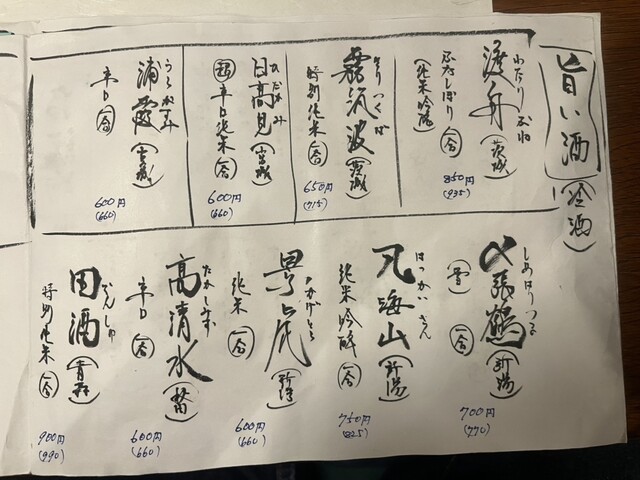 旨い酒
(冷酒)
わたりぶね
渡舟(茨城)
ふなしぼり
(純米吟醸)
一合
850円
(935)
きりつくば
霧筑波(茨城)
特別純米
一合
650円
(715)
ひたかみ
日高見(宮城)
超辛口純米
一合
600円
(660)
うらかすみ
浦霞(宮城)
辛口
一合
600円
(660)
しめはりつる
〆張鶴(新潟)
(雪)
一合
700円
(770)
はっかいさん
八海山(新潟)
純米吟醸
一合
750円
(825)
かげとら
景虎(新潟)
純米
一合
600円
(660)
たかしみず
高清水(秋田)
辛口
一合
600円
(660)
でんしゅ
田酒(青森)
特別純米
一合
900円
(990)